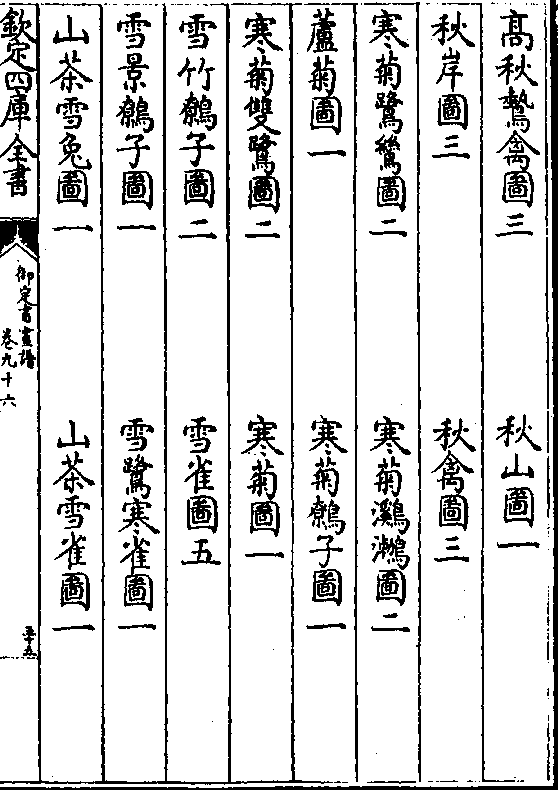 髙秋鷙禽圖三　秋山圖一
秋岸圖三　秋禽圖三
寒菊鷺鷥圖二　寒菊鸂鶒圖二
蘆菊圖一　寒菊鵪子圖一
寒菊雙鷺圖二　寒菊圖一
雪竹鵪子圖二　雪雀圖五
雪景鵪子圖一　雪鷺寒雀圖一
山茶雪兔圖一　山茶雪雀圖一
欽定四庫全書
御定書畫譜
卷九十六